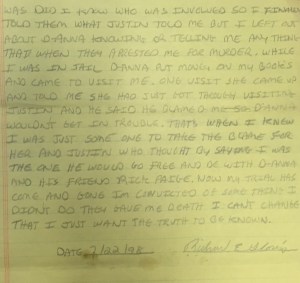 WAS DID I KNOW WHO WAS INVOLVED SO I FINALLY
TOLD THEM WHAT JUSTIN TOLD ME BUT I LEFT OUT
ABOUT D-ANNA KNOWING OR TELLING ME ANY THING
THAT WHEN THEY ARRESTED ME FOR MURDER. WHILE
I WAS IN JAIL D-ANNA PUT MONEY ON MY BOOKS
AND CAME TO VISIT ME. ONE VISIT SHE CAME IN
AND TOLD ME SHE HAD JUST GOT THOUGH VISITING
JUSTIN AND HE SAID HE BLAMED ME SO D-ANNA
WOULDN'T GET IN TROUBLE. THATS WHEN I KNEW
I WAS JUST SOME ONE TO TAKE THE BLAME FOR
HER AND JUSTIN WHO THOUGHT BY SAYING I WAS
THE ONE HE WOULD GO FREE AND BE WITH D-ANNA
AND HIS FRIEND RICK PAIGE. NOW MY TRIAL HAS
COME AND GONE IM CONVICTED OF SOME THING I
DIDNT DO THEY GAVE ME DEATH I CANT CHANGE
THAT I JUST WANT THE TRUTH TO BE KNOWN.
DATE 7/22/98 Richard E